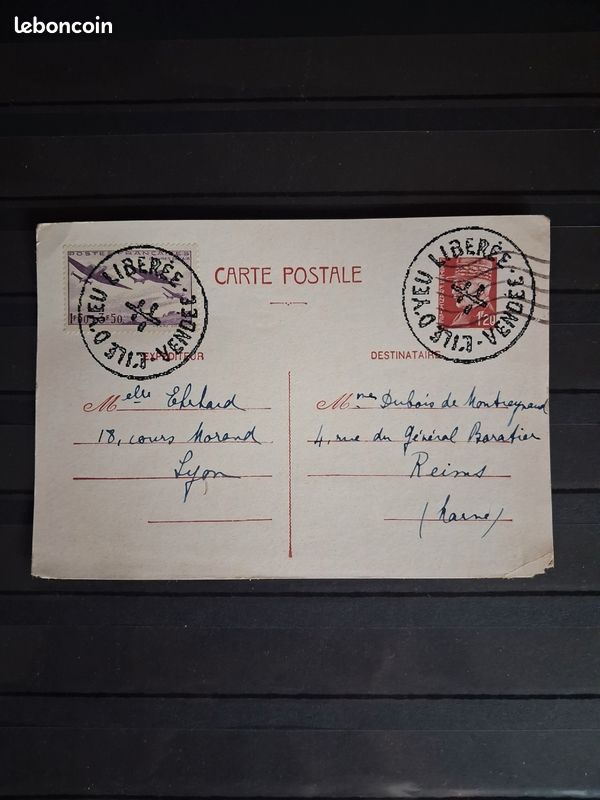 leboncoin
POSTES FRANÇAISES
1F50+3F50
L'ILE D'YEU LIBERÉE. VENDEE-
CARTE POSTALE
L'ILE D'YEU LIBERÉE. VENDEE-
1F20
EXPÉDITEUR
Melle Ehrhard
18, cours Morand
Lyon
DESTINATAIRE
Mmes Dubois de Montreynaud
4, rue du Général Baratier
Reims
(Marne)